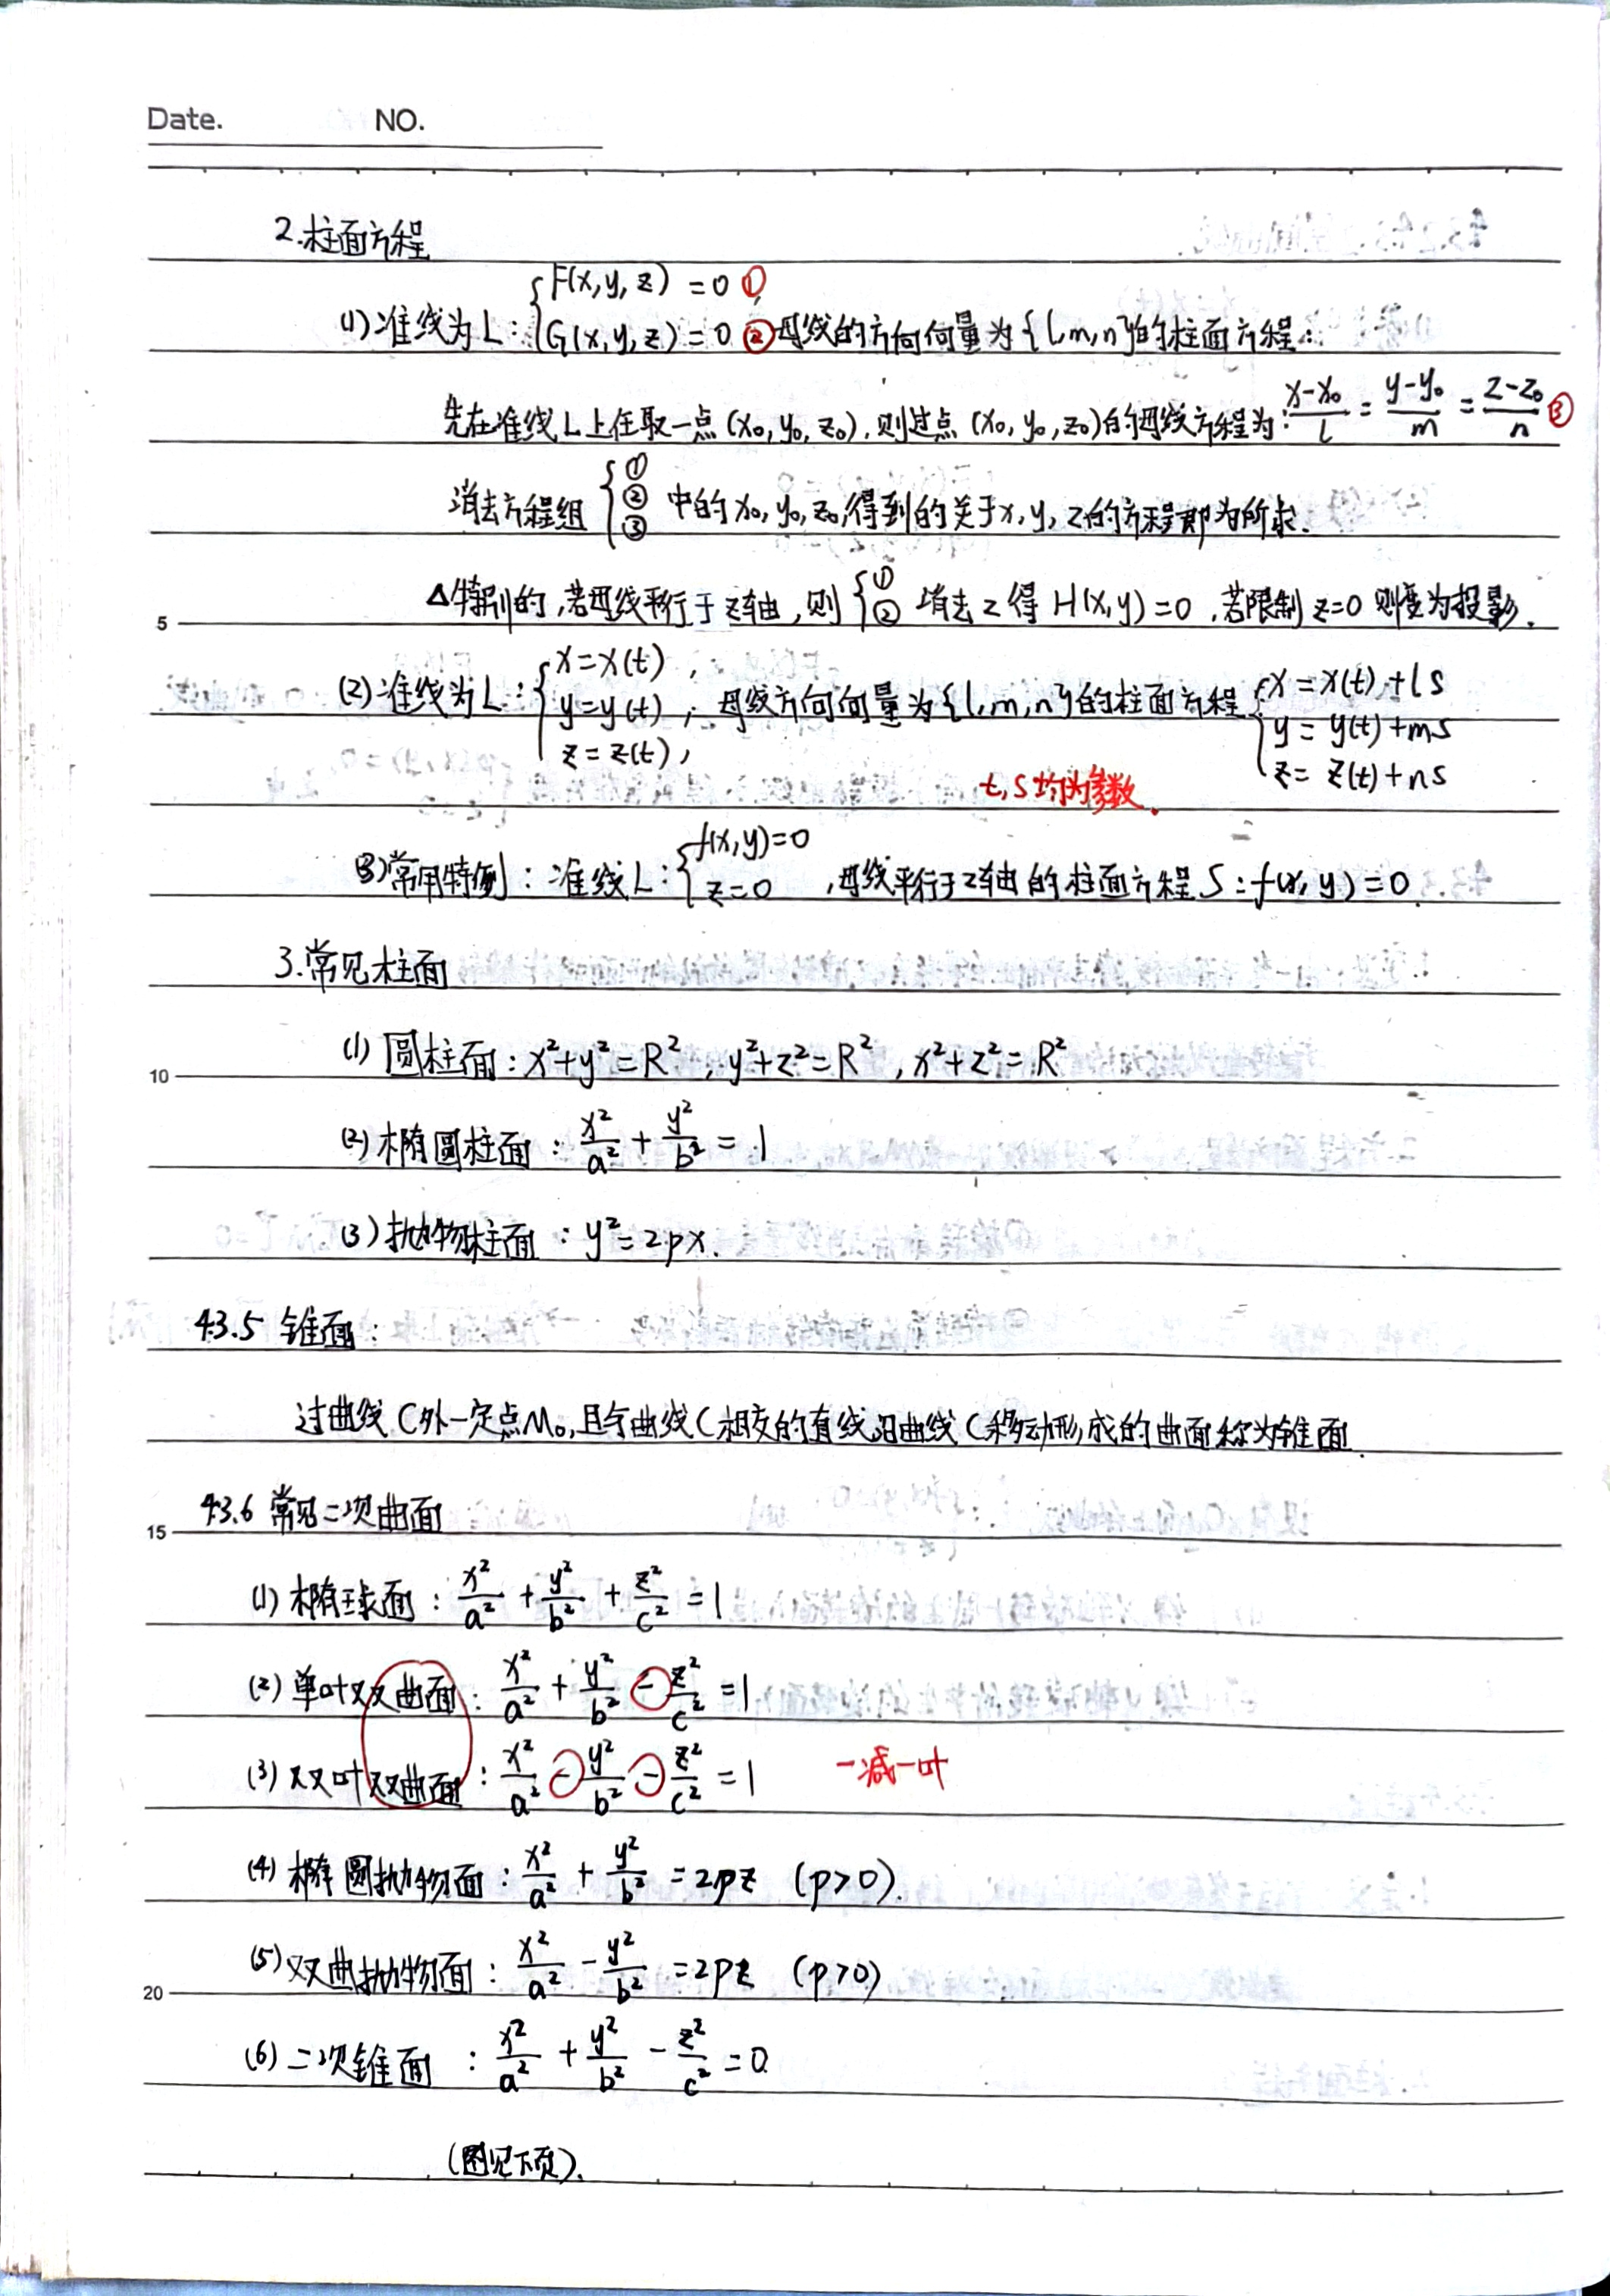 Date. NO.
2.柱面方程
(1)准线为L:{F(x,y,z)=0 ①, G(x,y,z)=0 ② 母线的方向向量为{l,m,n}的柱面方程:
先在准线L上任取一点(x₀,y₀,z₀),则过点(x₀,y₀,z₀)的母线方程为:(x-x₀)/l=(y-y₀)/m=(z-z₀)/n ③
消去方程组{① ② ③ 中的x₀,y₀,z₀,得到的关于x,y,z的方程即为所求.
△特别的,若母线平行于z轴,则{① ② 消去z得H(x,y)=0,若限制z=0则变为投影.
5
(2)准线为L:{x=x(t), y=y(t), z=z(t), 母线方向向量为{l,m,n}的柱面方程{x=x(t)+ls y=y(t)+ms z=z(t)+ns
t,s均为参数.
(3)常用特例:准线L:{f(x,y)=0 z=0 ,母线平行于z轴的柱面方程S:f(x,y)=0.
3.常见柱面
(1)圆柱面:x²+y²=R²,y²+z²=R²,x²+z²=R²
10
(2)椭圆柱面:x²/a²+y²/b²=1
(3)抛物柱面:y²=2px.
4.3.5 锥面:
过曲线C外一定点M₀,且与曲线C相交的直线沿曲线C移动形成的曲面称为锥面.
4.3.6 常见二次曲面
15
(1)椭球面:x²/a²+y²/b²+z²/c²=1
(2)单叶双曲面:x²/a²+y²/b²-z²/c²=1
(3)双叶双曲面:x²/a²-y²/b²-z²/c²=1 一减一叶
(4)椭圆抛物面:x²/a²+y²/b²=2pz (p>0).
(5)双曲抛物面:x²/a²-y²/b²=2pz (p>0)
20
(6)二次锥面:x²/a²+y²/b²-z²/c²=0.
(图见下页).